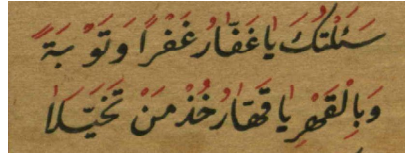 سَئَلْتُكَ يَا غَفَّارُ غَفْرًا وَتَوْبَةً
وَبِالْقَهْرِ يَا قَهَّارُ خُذْ مَنْ تَحَيَّلَا